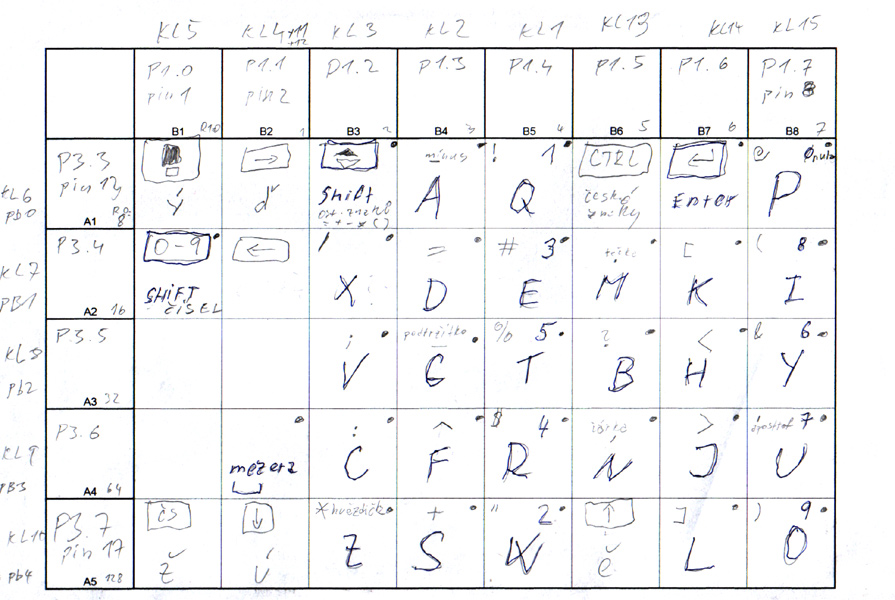 KL5 KL4 KL3 KL2 KL1 KL13 KL14 KL15
P1.0 P1.1 P1.2 P1.3 P1.4 P1.5 P1.6 P1.7
pin 1 pin 2 pin 8
B1 B2 1 B3 2 B4 3 B5 4 B6 5 B7 6 B8 7
P3.3 → mínus ! 1 CTRL ↵ @ 0 nula
KL6 pin 13 ý ď Shift A Q české Enter P
pb0 A1 8 znaky
P3.4 0-9 ← / = # 3 tečka [ ( 8
KL7 X D E M K I
PB1 A2 16 SHIFT ČÍSEL
P3.5 ; podtržítko _ % 5 ? < & 6
KL8 V G T B H Y
pb2 A3 32
P3.6 : ^ $ 4 čárka > apostrof 7
KL9 mezera C F R N J U
PB3 A4 64
P3.7 čs ↓ * hvězdička + " 2 ↑ ] ) 9
pin 17 ž Z S W ě L O
pb4 A5 128